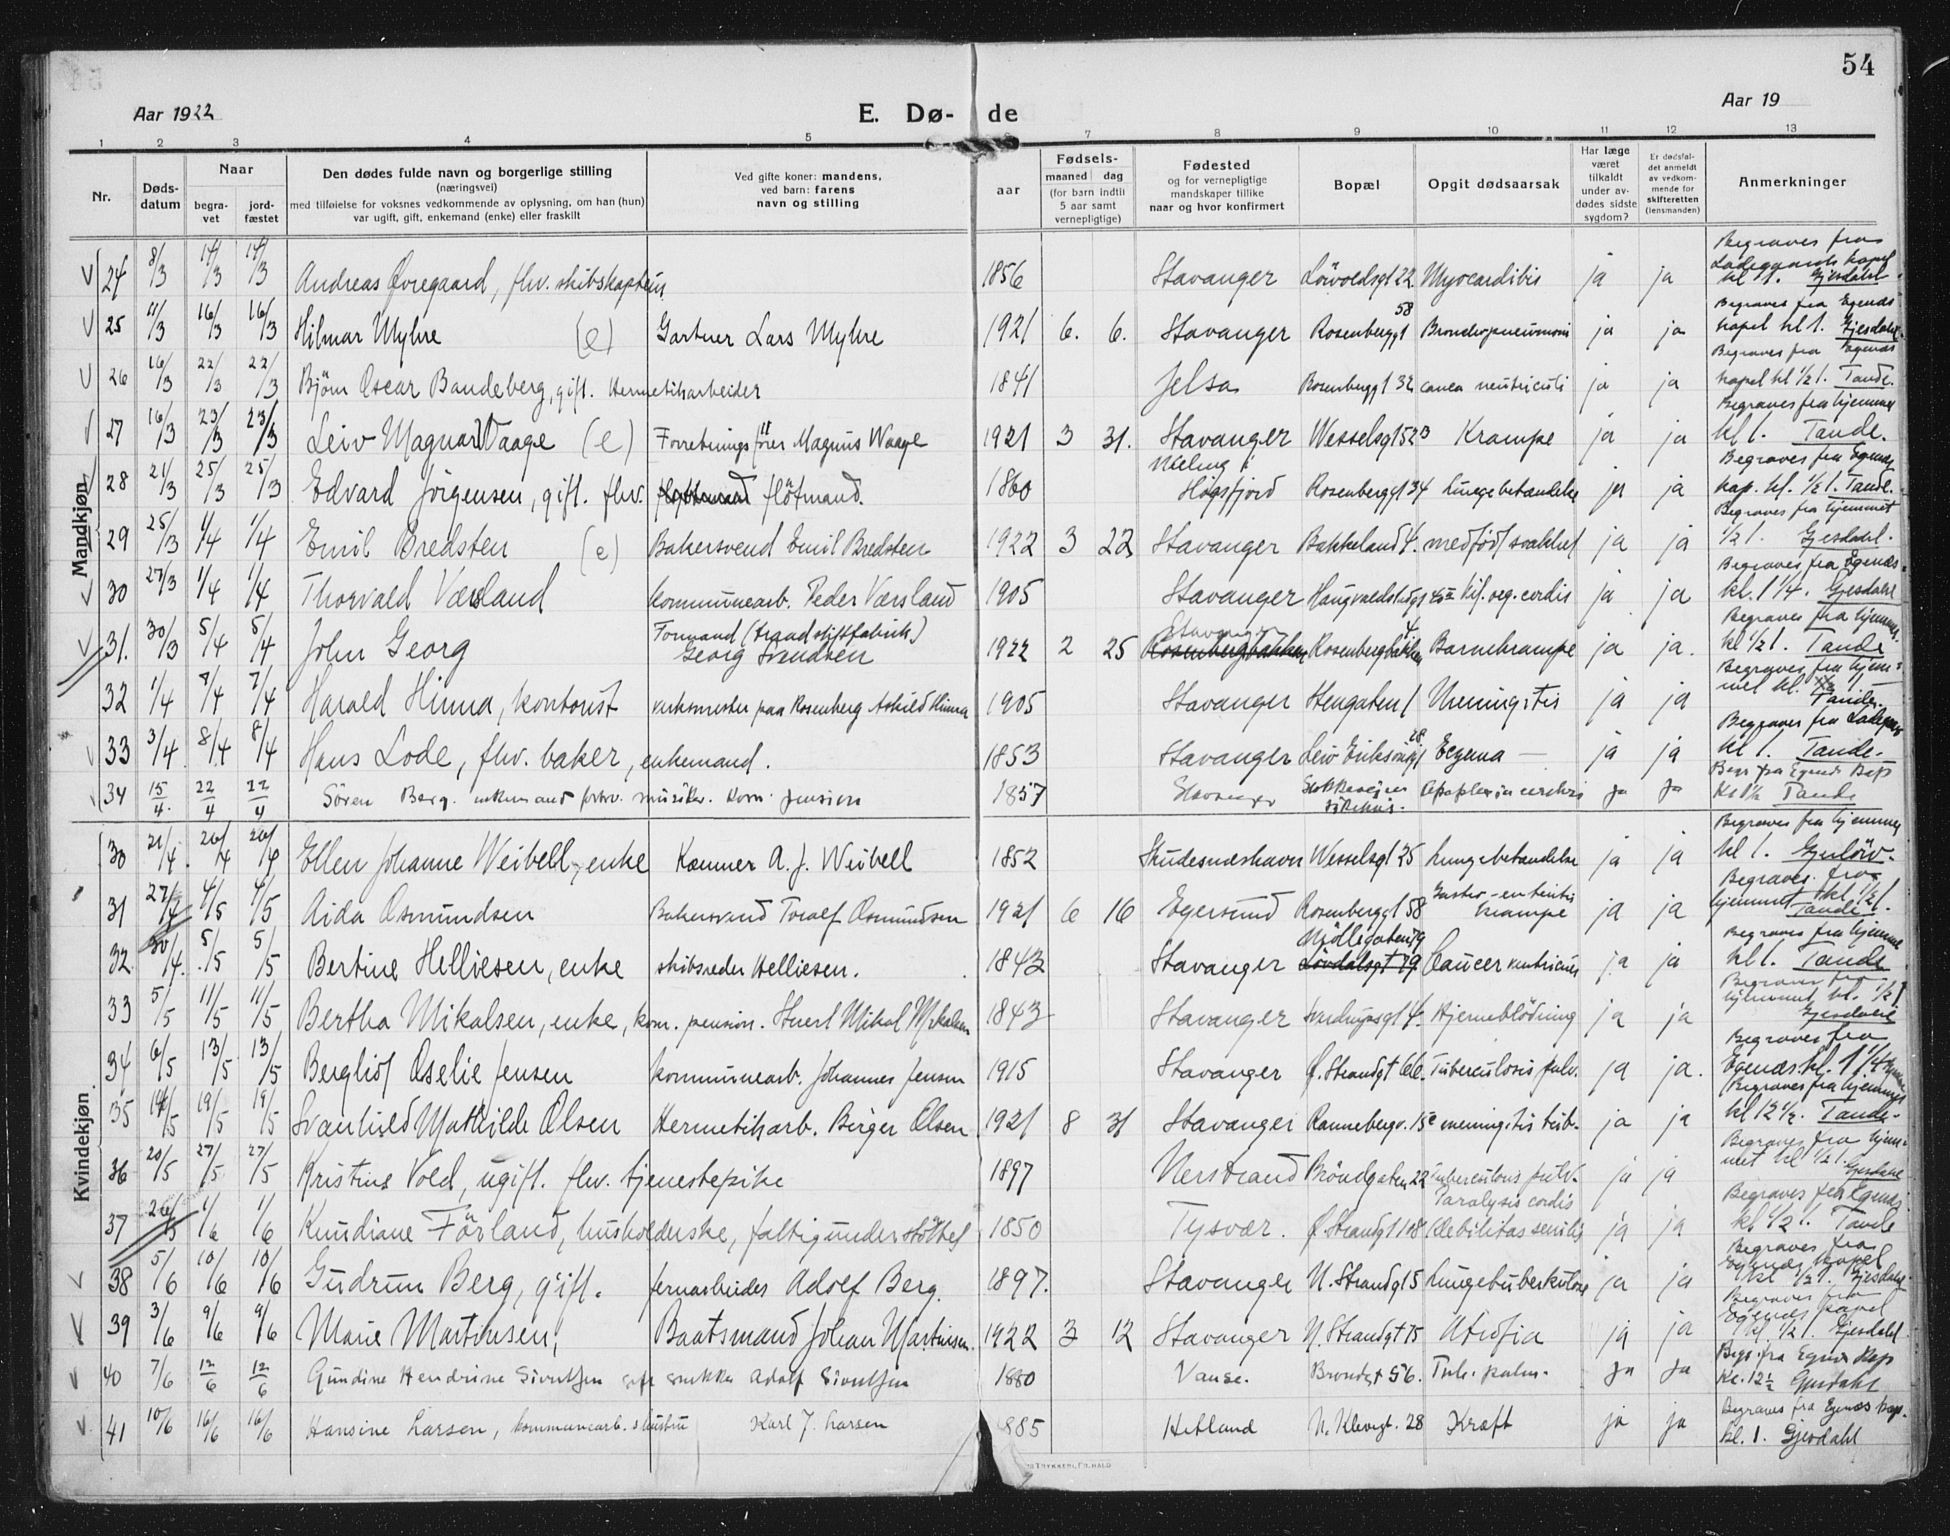 54
Aar 1922
E. Dø- de
Aar 19
1 2 3 4 5 6 7 8 9 10 11 12 13
Nr.
Døds-
datum
Naar
begra-
vet
jord-
fæstet
Den dødes fulde navn og borgerlige stilling
(næringsvei)
med tilføielse for voksnes vedkommende av oplysning, om han (hun)
var ugift, gift, enkemand (enke) eller fraskilt
Ved gifte koner: mandens,
ved barn: farens
navn og stilling
aar
Fødsels-
maaned dag
(for barn indtil
5 aar samt
vernepligtige)
Fødested
og for vernepligtige
mandskaper tillike
naar og hvor konfirmert
Bopæl
Opgit dødsaarsak
Har læge
været
tilkaldt
under av-
dødes sidste
sygdom?
Er dødsfal-
det anmeldt
av vedkom-
mende for
skifteretten
(lensmanden)
Anmerkninger
Mandkjøn
24 8/3 14/3 14/3 Andreas Øvregaard, fhv. skibskaptein 1856 Stavanger Lövvoldsgt 22. Myocarditis ja ja Begraves fra Ladegaards kapel kl 1. Gjesdahl.
25 11/3 16/3 16/3 Hilmar Myhre (e) Gartner Lars Myhre 1921 6. 6. Stavanger Rosenberggt 58 Bronchopneumoni ja ja Begraves fra Egenæs kapel kl 1. Gjesdahl.
26 16/3 22/3 22/3 Bjöm Oscar Bandeberg, gift. Hermetikarbeider 1841 Jelsa Rosenberggt 32 cancer ventriculi ja ja Begraves fra Egenæs kapel kl 1/2 1. Tande.
27 16/3 23/3 23/3 Leiv Magnar Waage (e) Forretningsförer Magnus Waage 1921 3 31. Stavanger Wesselsgt 52 Krampe ja ja Begraves fra hjemmet kl 1. Tande.
28 21/3 25/3 25/3 Edvard Jörgensen, gift. fhv. flötmand. 1860 Högsfjord Rosenberggt 34 Lungebetændelse ja ja Begraves fra Egenæs kap. kl. 1/2 1. Tande.
29 25/3 1/4 1/4 Emil Bredsten (e) Bakersvend Emil Bredsten 1922 3 22 Stavanger Bakkeland 4. medfödt svakhet ja ja Begraves fra hjemmet 1/2 1. Gjesdahl.
30 27/3 1/4 1/4 Thorvald Værsland kommunearb. Peder Værsland 1905 Stavanger Haugvaldstadgt Vit. org. cordis ja ja Begraves fra Egenæs. kl. 1 1/4. Gjesdahl
31. 30/3 5/4 5/4 John Georg Formand (traadstiftfabrik.) Georg Svendsen 1922 2 25 Stavanger Rosenbergbakken 4 Barnekrampe ja ja. Begraves fra hjemmet. kl 1/2 1. Tande
32 1/4 7/4 7/4 Harald Hinna, kontorist verksmester paa Rosenberg Askild Hinna 1905 Stavanger Stengaten 1 Meningitis ja ja Begraves fra hjemmet kl. Tande.
33 3/4 8/4 8/4 Hans Lode, fhv. baker, enkemand. 1853 Stavanger Leiv Eriksongt 28 Eczema — ja ja Begraves fra Ladegaard kl 1. Tande.
34 15/4. 22/4 22/4 Sören Berg. enkemand forhv. musiker. Kom. pension 1857 Stavanger Stokkavejens sykehus. Apoplexia cerebri ja ja Begr. fra Egenæs Kap Kl 1 1/2 Tande
Kvindekjøn
30 21/4. 26/4 26/4 Ellen Johanne Weibell, enke Kæmner A. J. Weibell 1852 Skudesnæshavn Wesselsgt 25 Lungebetændelse ja ja Begraves fra hjemmet kl 1. Gjerlöw.
31 27/4 4/5 4/5 Aida Osmundsen Bakersvend Toralf Osmundsen 1921 6 16 Egersund Rosenberggt 58 Gastro-enteritis Krampe ja ja Begraves fra hjemmet kl 1/2 1. Tande.
32. 30/4. 5/5 5/5 Bertine Helliesen, enke skibsreder Helliesen. 1843 Stavanger Mölleg aten 79 Lövdalsgt 19 Cancer ventriculi ja ja Begraves fra hjemmet kl 1. Tande
33 5/5 11/5 11/5 Bertha Mikalsen, enke, kom. pension. Stuert Mikal Mikalsen 1843 Stavanger Sverdrupsgt 4. Hjerneblödning ja ja Begraves fra hjemmet kl. 1/2 1 Gjesdahl
34 6/5 13/5 13/5 Bergliot Oselie Jensen kommunearb. Johannes Jensen 1915 Stavanger Ø. Strandgt 66. Tuberculosis pulm. ja ja. Begraves fra Egenæs kl. 1 1/4
35 14/5 19/5 19/5 Svanhild Mathilde Olsen Hermetikarb. Birger Olsen 1921 8 31 Stavanger Rannebergv. 15 e meningitis tub. ja ja Begraves fra hjemmet kl 12 1/2. Tande.
36 20/5 27/5 27/5 Kristine Vold, ugift. fhv. tjenestepike 1897 Nerstrand Bröndgaten 22 Tuberculosis pulm. ja ja Begraves fra hjemmet kl 1/2 1. Gjesdahl
37 26/5 1/6 1/6 Knudiane Förland, husholderske, fattigunderstöttet 1850 Tysvær. Ø. Strandgt 108 Paralysis cordis (debilitas senilis) ja ja Begraves fra Egenæs kl 1/2 1. Tande
38 5/6 10/6 10/6 Gudrun Berg, gift. jernarbeider Adolf Berg. 1897. Stavanger N. Strandgt 5 Lungetuberkulose ja ja Begraves fra Egenæs kapel kl 1/2 1. Gjesdahl.
39 3/6 9/6 9/6 Marie Martinsen, Baatsmand Johan Martinsen. 1922 3 12 Stavanger N. Strandgt 15 Atrofia ja ja Begraves fra Egenæs kapel kl. 1/2 1. Gjesdahl
40 7/6 12/6 12/6 Gundine Hendrine Sivertsen gift snekker Adolf Sivertsen 1880 Vanse. Brøndgt 56. Tub. pulm. ja ja Begr. fra Egenæs Kap Kl. 12 1/2 Gjesdahl
41 10/6 16/6 16/6 Hansine Larsen, kommunearb. hustru Karl J. Larsen 1885 Hetland N. Klevegt. 28 Kræft ja ja Begraves fra Egenæs kap. Kl. 1. Gjesdahl
TRYKKERI, FR. HALD